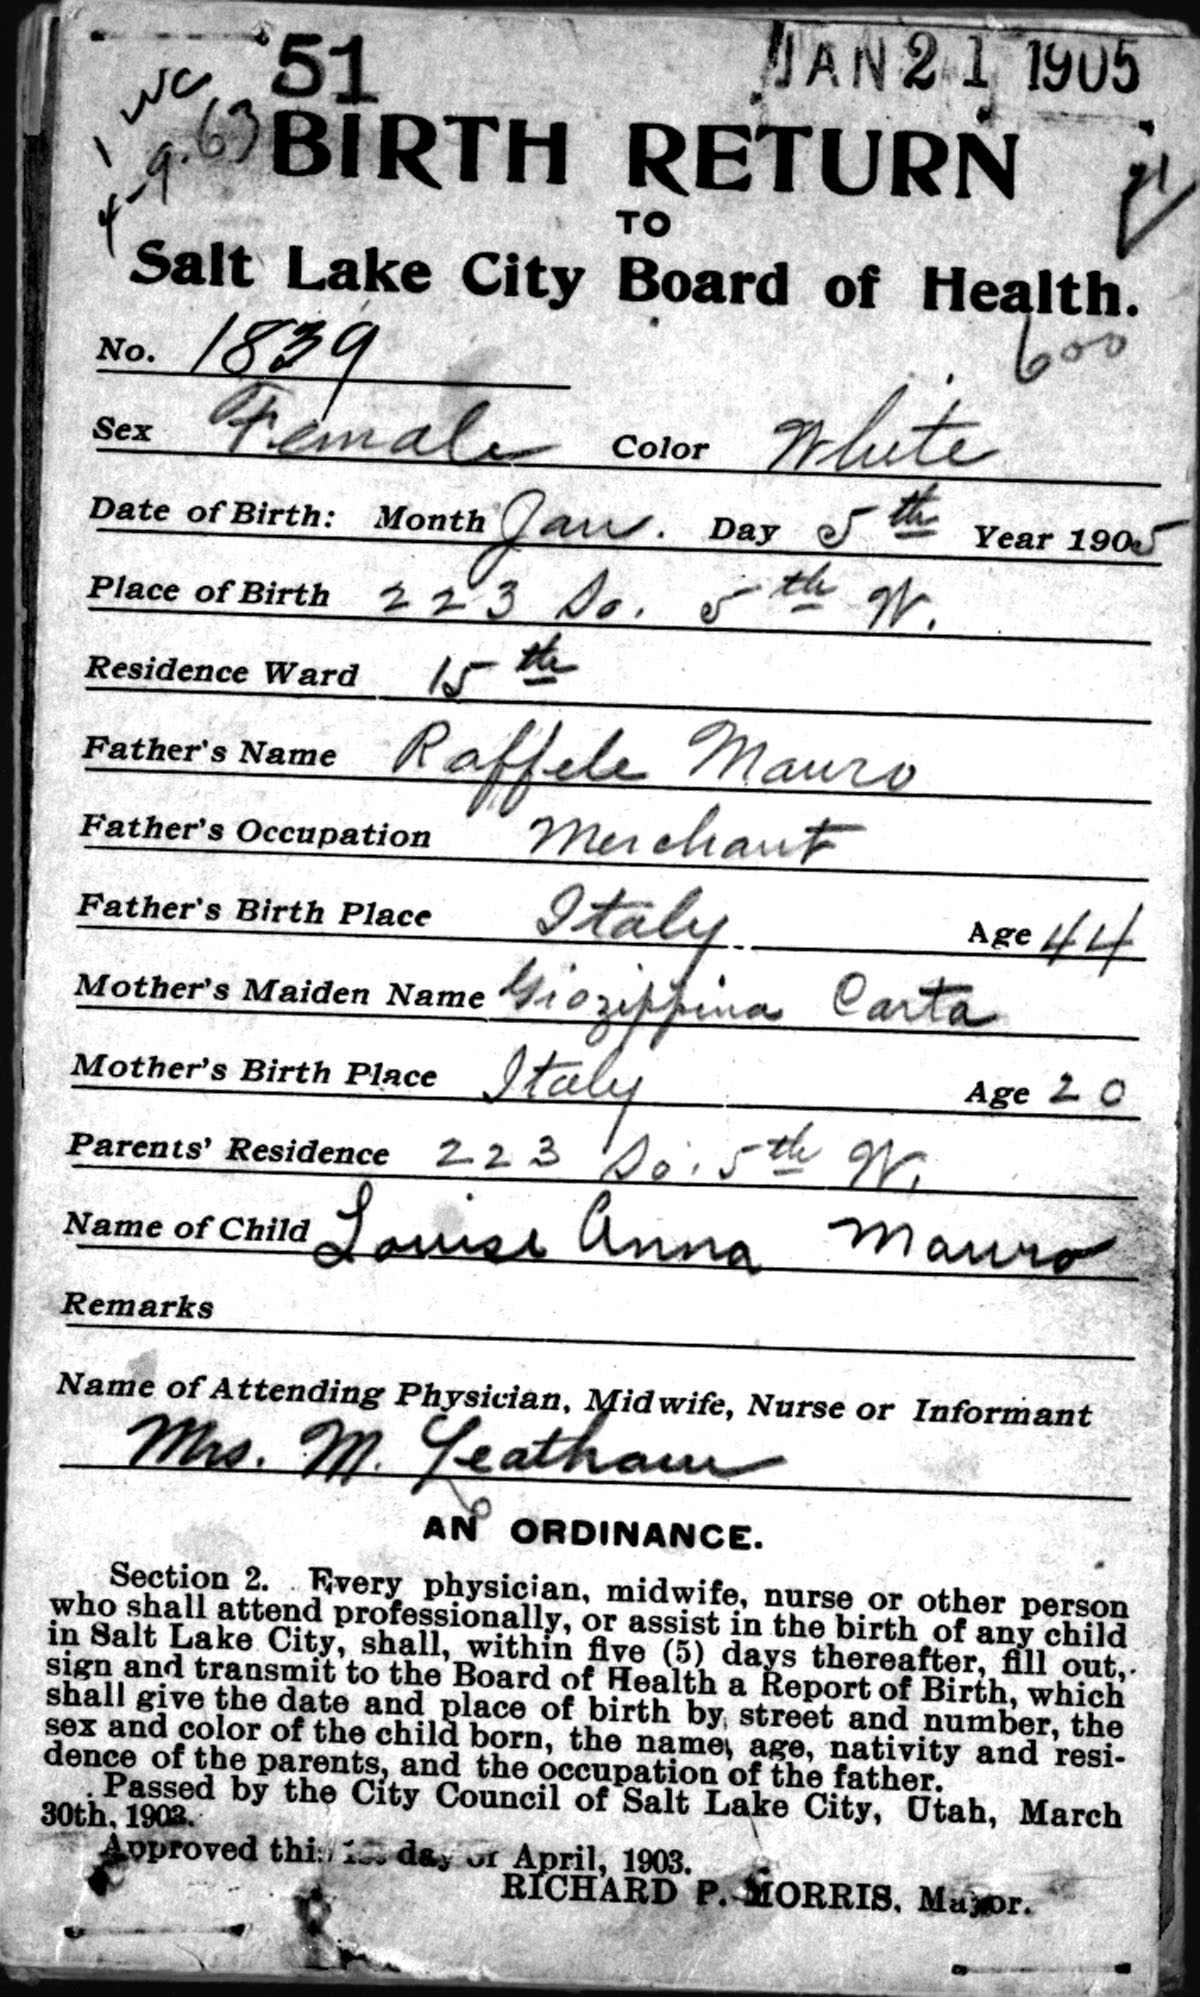 51 JAN 21 1905
1 WC
4-9-63
BIRTH RETURN
TO
Salt Lake City Board of Health.
600
No. 1839
Sex Female Color White
Date of Birth: Month Jan. Day 5th Year 1905
Place of Birth 223 So. 5th W.
Residence Ward 15th
Father's Name Raffele Mauro
Father's Occupation Merchant
Father's Birth Place Italy Age 44
Mother's Maiden Name Giozippina Carta
Mother's Birth Place Italy Age 20
Parents' Residence 223 So. 5th W.
Name of Child Louise Anna Mauro
Remarks
Name of Attending Physician, Midwife, Nurse or Informant
Mrs. M. Leatham
AN ORDINANCE.
Section 2. Every physician, midwife, nurse or other person
who shall attend professionally, or assist in the birth of any child
in Salt Lake City, shall, within five (5) days thereafter, fill out,
sign and transmit to the Board of Health a Report of Birth, which
shall give the date and place of birth by street and number, the
sex and color of the child born, the name, age, nativity and resi-
dence of the parents, and the occupation of the father.
Passed by the City Council of Salt Lake City, Utah, March
30th, 1903.
Approved this day of April, 1903.
RICHARD P. MORRIS, Mayor.